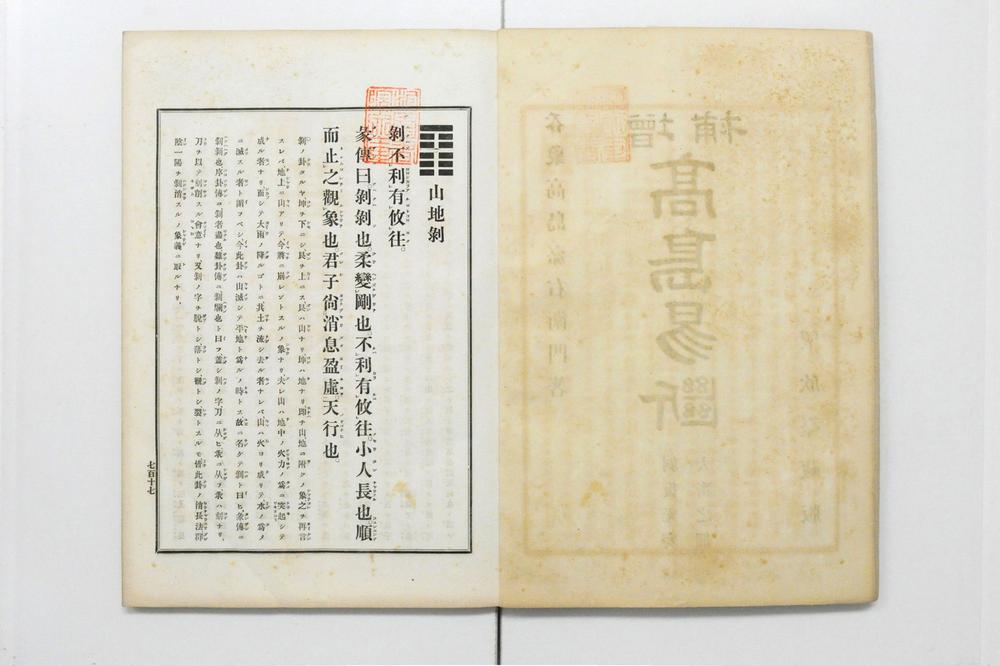 山地剝
剝不利有攸往。
彖傳曰剝剝也。柔變剛也。不利有攸往。小人長也。順
而止之觀象也君子尙消息盈虛天行也。
剝ノ卦タルヤ坤ヲ下ニシ艮ヲ上ニス艮ハ山ナリ坤ハ地ナリ卽チ山地ニ附クノ象之ヲ再言
スレバ地上ニ山アリテ今將ニ崩レントスルノ象ナリ夫レ山ハ地中ノ火力ノ爲ニ突起シテ
成ル者ナリ而シテ大雨ノ降ルゴトニ其土ヲ流シ去ル者ナレバ山ハ火ヨリ成リテ水ノ爲メ
ニ滅スル者ト謂フベシ今此卦ハ山滅シテ平地ト爲ルノ時トス故ニ名ケテ剝ト曰ヒ彖傳ニ
剝剝也序卦傳ニ剝者盡也雜卦傳ニ剝爛也ト曰フ蓋シ剝ノ字刀ニ从ヒ彔ニ从フ彔ハ刻ナリ
刀ヲ以テ刻削スル會意ナリ又剝ノ字ヲ脫トシ落トシ褫トシ裂トスルモ皆此卦ノ消長法群
陰一陽ヲ剝消スルノ象義ニ取ルナリ、
七百十七
增補
高島易斷